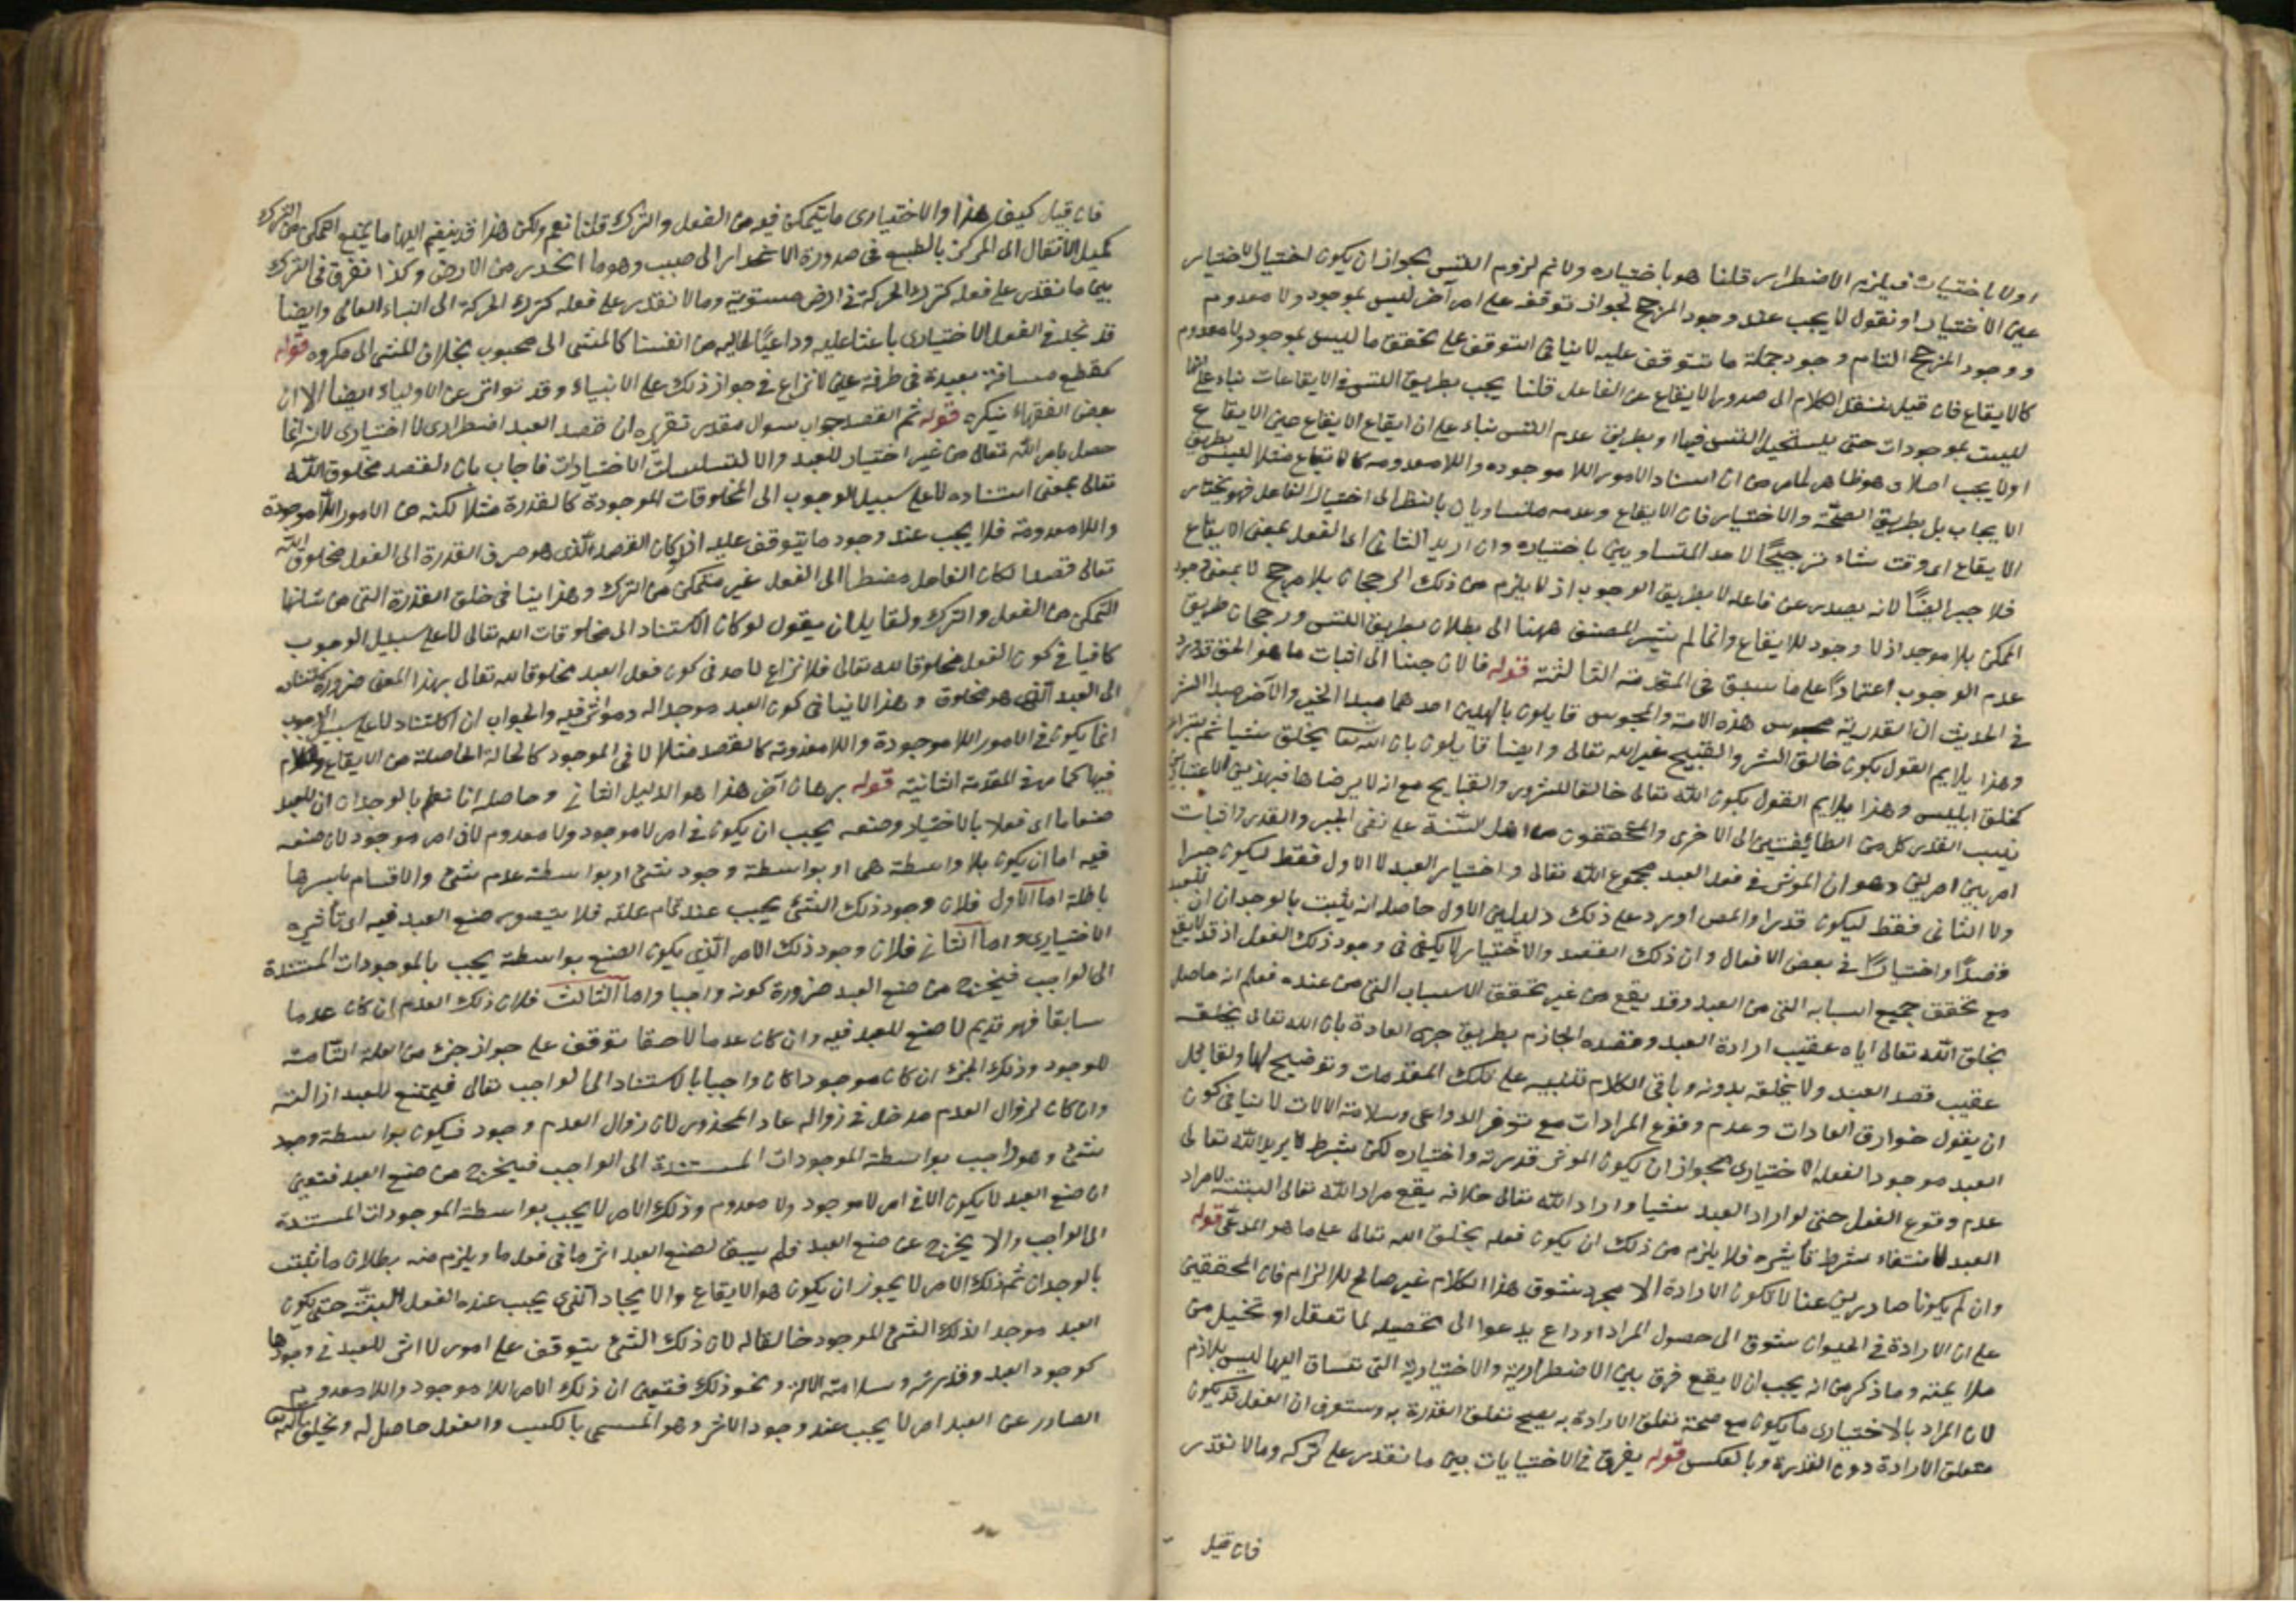 اولا باختيار فيلزم الاضطرار قلنا هو باختياره ولا نم لزوم التس لجواز ان يكون اختيار الاختيار
عين الاختيار او نقول لا يجب عند وجود المرجح لجواز توقفه على امر آخر ليس بموجود ولا معدوم
ووجود المرجح التام وجود جملة ما تتوقف عليه لا ينافي التوقف على تحقق ما ليس بموجود ولا معدوم
كالايقاع فان قيل ننقل الكلام الى صدور الايقاع عن الفاعل قلنا يجب بطريق التس في الايقاعات بناء على انها
ليست بموجودات حتى يستحيل التس فيها او بطريق عدم التس بناء على ان ايقاع الايقاع عين الايقاع
او لا يجب اصلا وهو ظاهر لما مر من ان استناد الامور اللا موجودة واللا معدومة كالايقاع مثلا ليس بطريق
الايجاب بل بطريق الصحة والاختيار فان الايقاع وعدمه متساويان بالنظر الى اختيار الفاعل فهو يختار
الايقاع اى وقت شاء ترجيحا لاحد المتساويين باختياره وان اريد الثانى اى الفعل بمعنى الايقاع
فلا جبر ايضا لانه يصدر عن فاعله لا بطريق الوجوب اذ لا يلزم من ذلك الرجحان بلا مرجح لا بمعنى وجود
الممكن بلا موجد اذ لا وجود للايقاع وانما لم يشر المصنف ههنا الى بطلان بطريق التس ورجحان طريق
عدم الوجوب اعتمادا على ما سبق فى المقدمة الثالثة قوله فالان جئنا الى اثبات ما هو الحق قد ورد
فى الحديث ان القدرية مجوس هذه الامة والمجوس قايلون بالهين احدهما مبدا الخير والآخر مبدا الشر
وهذا يلايم القول بكون خالق الشر والقبيح غير الله تعالى وايضا قايلون بان الله تعا يخلق شيا ثم يتبرا
كخلق ابليس وهذا يلايم القول بكون الله تعالى خالقا للشرور والقبايح مع انه لا يرضاها فبهذين الاعتبارين
نسب القدر كل من الطائفتين الى الاخرى والمحققون من اهل السنة على نفى الجبر والقدر واثبات
امر بين امرين وهو ان المؤثر فى فعل العبد مجموع الله تعالى واختيار العبد لا الاول فقط ليكون جبرا
ولا الثانى فقط ليكون قدرا والمص اورد على ذلك دليلين الاول حاصله انه يثبت بالوجدان ان للعبد
قصدا واختيارا فى بعض الافعال وان ذلك القصد والاختيار لا يكفى فى وجود ذلك الفعل اذ قد لا يقع
مع تحقق جميع اسبابه التى من العبد وقد يقع من غير تحقق الاسباب التى من عنده فعلم انه حاصل
بخلق الله تعالى اياه عقيب ارادة العبد وقصده الجازم بطريق جرى العادة بان الله تعالى يخلقه
عقيب قصد العبد ولا يخلقه بدونه وباقى الكلام تنبيه على تلك المقدمات وتوضيح لها ولقائل
ان يقول خوارق العادات وعدم وقوع المرادات مع توفر الدواعى وسلامة الالات لا ينافى كون
العبد موجدا لفعله الاختيارى لجواز ان يكون المؤثر قدرته واختياره لكن بشرط لا يريد الله تعالى
عدم وقوع الفعل حتى لو اراد العبد شيا واراد الله تعالى خلافه يقع مراد الله تعالى البتة لا مراد
العبد لانتفاء شرط تأثيره فلا يلزم من ذلك ان يكون فعله بخلق الله تعالى على ما هو المدعى قوله
وان لم يكونا صادرين عنا لا لكون الارادة الا مجرد شوق هذا الكلام غير صالح للالزام فان المحققين
على ان الارادة فى الحيوان شوق الى حصول المراد او داع يدعوا الى تحصيله لما تعقل او تخيل من
ملايمته وما ذكر من انه يجب ان لا يقع فرق بين الاضطرارية والاختيارية التى تنساق اليها ليس بلازم
لان المراد بالاختيارى ما يكون مع صحة تعلق الارادة به يصح تعلق القدرة به وستعرف ان الفعل قد يكون
متعلق الارادة دون القدرة وبالعكس قوله يفرق فى الاختيايات بين ما نقدر على تركه وما لا نقدر
فان قيل
فان قيل كيف هذا والاختيارى ما يتمكن فيه من الفعل والترك قلنا نعم ولكن هذا قد ينضم اليه ما يمنع التمكن من الترك
كميل الانتقال الى المركز بالطبع فى صدورة الانحدار الى صبب وهو ما انحدر من الارض وكذا نفرق فى الترك
بين ما نقدر على فعله كترك الحركة فى ارض مستوية وما لا نقدر على فعله كترك الحركة الى البناء العالى وايضا
قد نجد فى الفعل الاختيارى باعثا عليه وداعيا اليه من انفسنا كالمشى الى محبوب بخلاف المشى الى مكروه قوله
كقطع مسافة بعيدة فى طرفة عين لا نزاع فى جواز ذلك على الانبياء وقد تواتر عن الاولياء ايضا الا ان
بعض الفقهاء ينكره قوله ثم القصد جواب سوال مقدر تقريره ان قصد العبد اضطرارى لا اختيارى لانه انما
حصل بامر الله تعالى من غير اختيار للعبد والا لتسلسلت الاختيارات فاجاب بان القصد مخلوق الله
تعالى بمعنى استناده لا على سبيل الوجوب الى المخلوقات الموجودة كالقدرة مثلا لكنه من الامور اللا موجودة
واللا معدومة فلا يجب عند وجود ما يتوقف عليه اذ لو كان القصد الذى هو صرف القدرة الى الفعل مخلوق الله
تعالى قصدا لكان الفاعل مضطرا الى الفعل غير متمكن من الترك وهذا ينافى خلق القدرة التى من شانها
التمكن من الفعل والترك ولقايل ان يقول لو كان الاستناد الى مخلوقات الله تعالى لا على سبيل الوجوب
كافيا فى كون الفعل مخلوقا لله تعالى فلا نزاع لاحد فى كون فعل العبد مخلوقا لله تعالى بهذا المعنى ضرورة استناده
الى العبد الذى هو مخلوقه وهذا لا ينافى كون العبد موجدا له ومؤثرا فيه والجواب ان الاستناد لا على سبيل الوجوب
انما يكون فى الامور اللا موجودة واللا معدومة كالقصد مثلا لا فى الموجود كالحالة الحاصلة من الايقاع والكلام
فيها كما مر فى المقدمة الثانية قوله برهان آخر هذا هو الدليل الثانى وحاصله انا نعلم بالوجدان ان للعبد
صنعا ما اى فعلا بالاختيار وصنعه يجب ان يكون فى امر لا موجود ولا معدوم لا فى امر موجود لان صنعه
فيه اما ان يكون بلا واسطة هى او بواسطة وجود شئ او بواسطة عدم شئ والاقسام باسرها
باطلة اما الاول فلان وجود ذلك الشئ يجب عند تمام علته فلا يتصور صنع العبد فيه اى تأثيره
الاختيارى واما الثانى فلان وجود ذلك الامر الذى يكون الصنع بواسطته يجب بالموجودات المستندة
الى الواجب فيخرج من صنع العبد ضرورة كونه واجبا واما الثالث فلان ذلك العدم ان كان عدما
سابقا فهو قديم لا صنع للعبد فيه وان كان عدما لاحقا توقف على جواز جزء من العلة التامة
للوجود وذلك الجزء ان كان موجودا كان واجبا بالاستناد الى الواجب تعالى فيمتنع للعبد ازالته
وان كان لزوال العدم مدخل فى زواله عاد المحذور لان زوال العدم وجود فيكون بواسطة وجود
شئ وهو واجب بواسطة الموجودات المستندة الى الواجب فيخرج من صنع العبد فتعين
ان صنع العبد لا يكون الا فى امر لا موجود ولا معدوم وذلك الامر لا يجب بواسطة الموجودات المستندة
الى الواجب والا يخرج عن صنع العبد فلم يبق لصنع العبد اثر ما فى فعل ما ويلزم منه بطلان ما يثبت
بالوجدان ثم ذلك الامر لا يجوز ان يكون هو الايقاع والايجاد الذى يجب عنده الفعل البتة حتى يكون
العبد موجدا لذلك الشئ الموجود خالقا له لان ذلك الشئ يتوقف على امور لا اثر للعبد فى وجودها
كوجود العبد وقدرته وسلامة الالة ونحو ذلك فتعين ان ذلك الامر اللا موجود واللا معدوم
الصادر عن العبد امر لا يجب عند وجود الاثر وهو المسمى بالكسب والفعل حاصل له وبخلق الله تعا